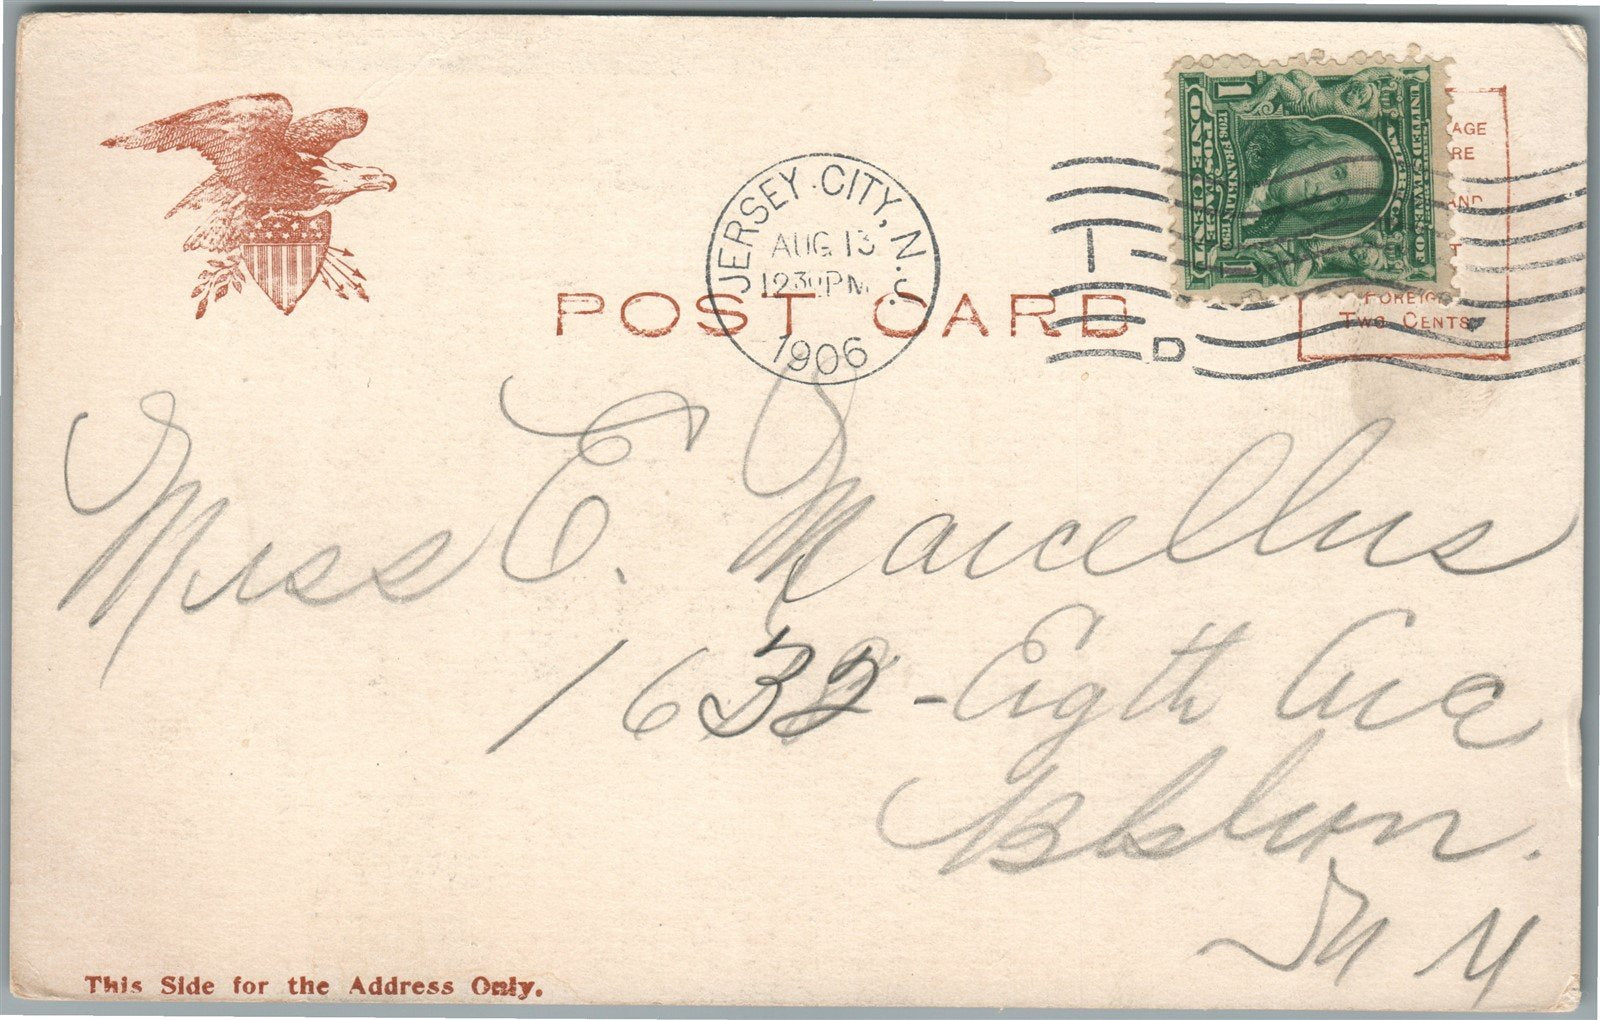 JERSEY CITY, N.J.
AUG 13
12 30 PM
1906
1
D
UNITED STATES OF
AMERICA
1706 FRANKLIN 1790
POSTAGE
ONE CENT
1 1
AGE
RE
AND
T
FOREIG
TWO CENTS
POST CARD
Miss E. Marcellus
1632 - Eigth Ave
Bklyn.
N Y
This Side for the Address Only.